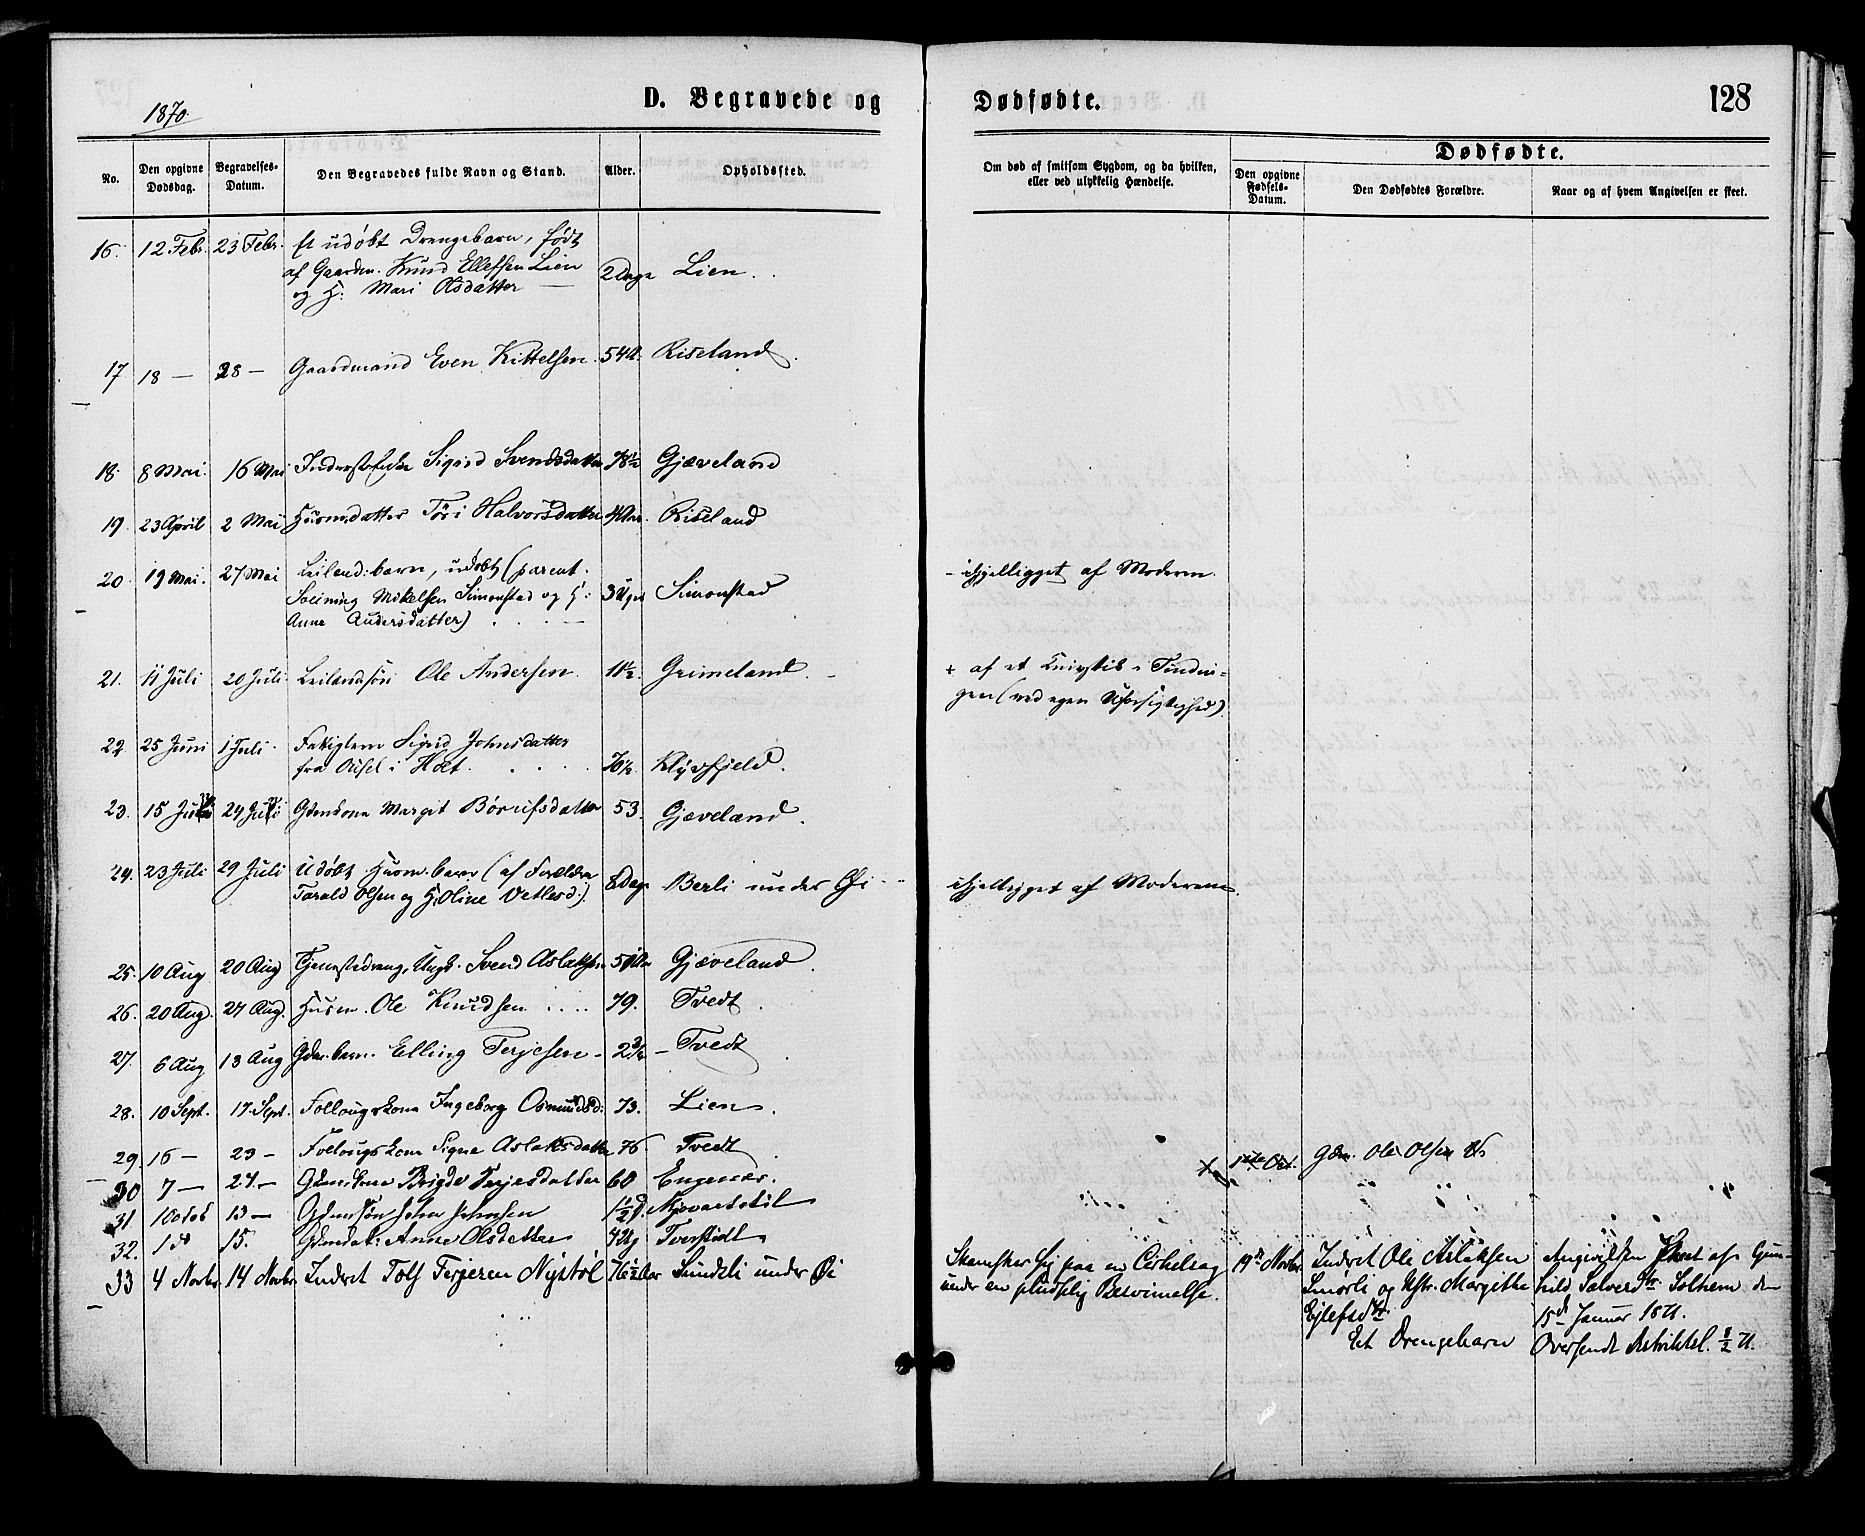 1870.
D. Begravede og Dødfødte.
128
No.
Den opgivne Dødsdag.
Begravelses-Datum.
Den Begravedes fulde Navn og Stand.
Alder.
Opholdssted.
Om død af smitsom Sygdom, og da hvilken,
eller ved ulykkelig Hændelse.
Dødfødte.
Den opgivne Fødsels-Datum.
Den Dødfødtes Forældre.
Naar og af hvem Angivelsen er skeet.
16. 12 Febr. 23 Febr. Et udøbt Drengebarn, født
af Gaardm. Knud Ellefsen Lien 2 Dage Lien
og H: Mari Olsdatter
17 18 — 28 — Gaardmand Even Kittelsen 54 A. Riseland.
18. 8 Mai 16 Mai Sigrid Svendsdatter 78½ Gjæveland
19. 23 April 2 Mai Husmdatter Tøri Halvorsdatter Riseland
20. 19 Mai. 27 Mai Leilend: barn, udøbt (parent.
Mikelsen Simonstad og H: 3 Uger Simonstad
Anne Andersdatter)
ihjelligget af Moderen.
21. 11 Juli 20 Juli Leilendsøn Ole Andersen 11½ Grimeland.
+ af et Knivstik i Tindin-
gen (ved egen Uforsigtighed).
22. 25 Juni 1 Juli Fattiglem Sigrid Johnsdatter
fra i Holt. 70½ Klyvfjeld.
23. 15 29 Gdmkona Margit 53. Gjæveland.
24. 23 Juli 29 Juli Udøbt Husm. barn (af Forældre
Tarald Olsen og H. Oline Vetlesd.) 8 Dage Berli under Øi
ihjelligget af Moderen.
25. 10 Aug 20 Aug Tjenestedreng, Ungk. Svend Aslaksen Gjæveland.
26. 20 Aug. 27 Aug. Husm. Ole Knudsen 79. Tvedt.
27. 6 Aug 13 Aug Gdm. barn. Elling Terjesen Tvedt
28. 10 Sept. 17. Sept. Follougskone Ingeborg Osmundsd. 73. Lien.
29. 16 — 23 — Follougskone Signe Aslaksdatter 76. Tvedt
1ste Oct. Gdm. Ole Olsen
30 7 — 24 — Gdmkone Terjesdatter 60 Engenes.
31 10 octob 13 —
32. 1 15. Anne Olsdatter
33 4 Novbr 14 Novbr Inderst Tolf Terjesen Nystøl 76½ Aar Sundsli under Øi
Skamskar sig paa en Cirkelsag
under en pludselig Besvimelse.
19de Novbr Inderst Ole Aslaksen
Smørli og Hstr. Margithe
Ejlefsdtr.
Et Drengebarn
Angivelsen skeet af Gun-
hild Solhem den
15de Januar 1871.
Oversendt